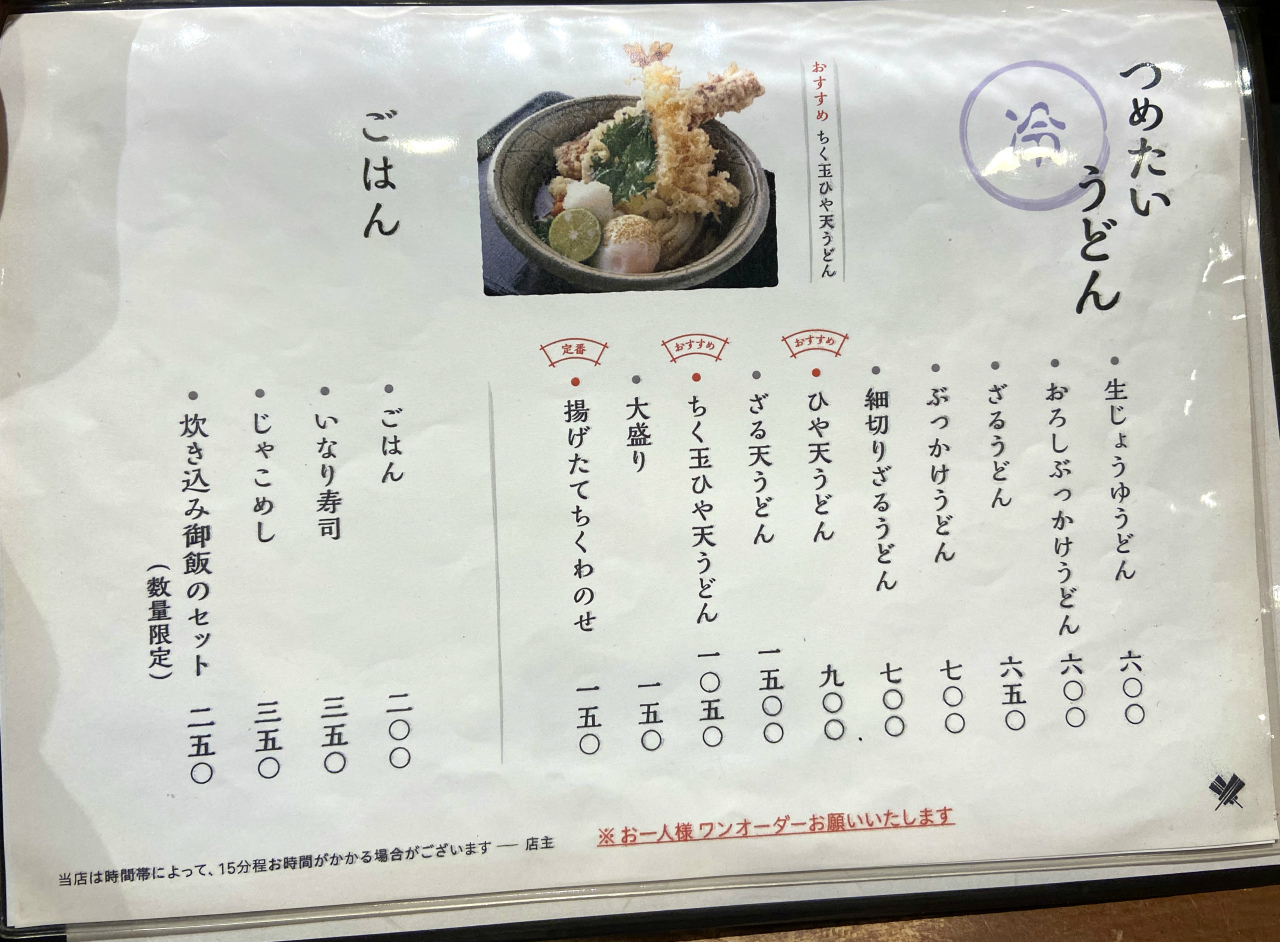 つめたい
うどん
冷
生じょうゆうどん 六〇〇
おろしぶっかけうどん 六〇〇
ざるうどん 六五〇
ぶっかけうどん 七〇〇
細切りざるうどん 七〇〇
おすすめ
ひや天うどん 九〇〇
ざる天うどん 一五〇〇
おすすめ
ちく玉ひや天うどん 一〇五〇
大盛り 一五〇
定番
揚げたてちくわのせ 一五〇
おすすめ ちく玉ひや天うどん
ごはん
ごはん 二〇〇
いなり寿司 三五〇
じゃこめし 三五〇
炊き込み御飯のセット 二五〇
(数量限定)
※お一人様 ワンオーダーお願いいたします
当店は時間帯によって、15分程お時間がかかる場合がございます ── 店主